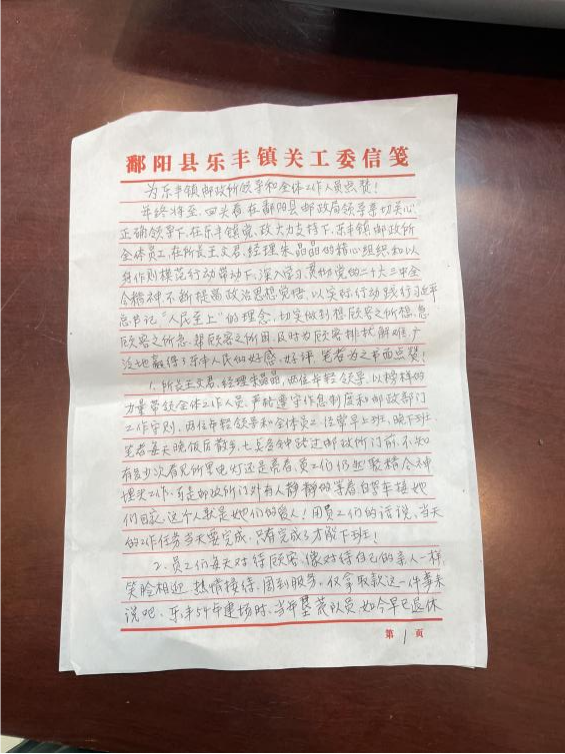 鄱阳县乐丰镇关工委信笺
为乐丰镇邮政所领导和全体工作人员点赞!
年终将至,回头看在鄱阳县邮政局领导亲切关心
正确领导下,在乐丰镇党政大力支持下,乐丰镇邮政所
全体员工,在所长王文君,经理朱晶晶的精心组织和以
身作则模范行动带动下,深入学习贯彻党的二十大三中全
会精神,不断提高政治思想觉悟,以实际行动践行习近平
总书记"人民至上"的理念,切实做到想顾客之所想,急
顾客之所急,帮顾客之所困,及时为顾客排忧解难,广
泛地赢得了乐丰人民的好感、好评,笔者为之书面点赞!
1、所长王文君、经理朱晶晶,两位年轻领导,以榜样的
力量带领全体工作人员,严格遵守作息制度和邮政部门
工作守则,两位年轻领导和全体员工,经常早上班,晚下班,
笔者每天晚饭后散步,七点多钟路过邮政所门前,不知
有多少次看见所里电灯还是亮着,员工们仍然聚精会神
埋头工作,可是邮政所门外有人静静的等着,自驾车接她
们回家,这个人就是她们的爱人!用员工们的话说,当天
的工作任务当天要完成,只有完成了才能下班!
2、员工们每天对待顾客,像对待自己的亲人一样,
笑脸相迎,热情接待,周到服务,仅拿取款这一件事来
说吧,乐丰54年建场时,当年垦荒队员,如今早已退休
第1页